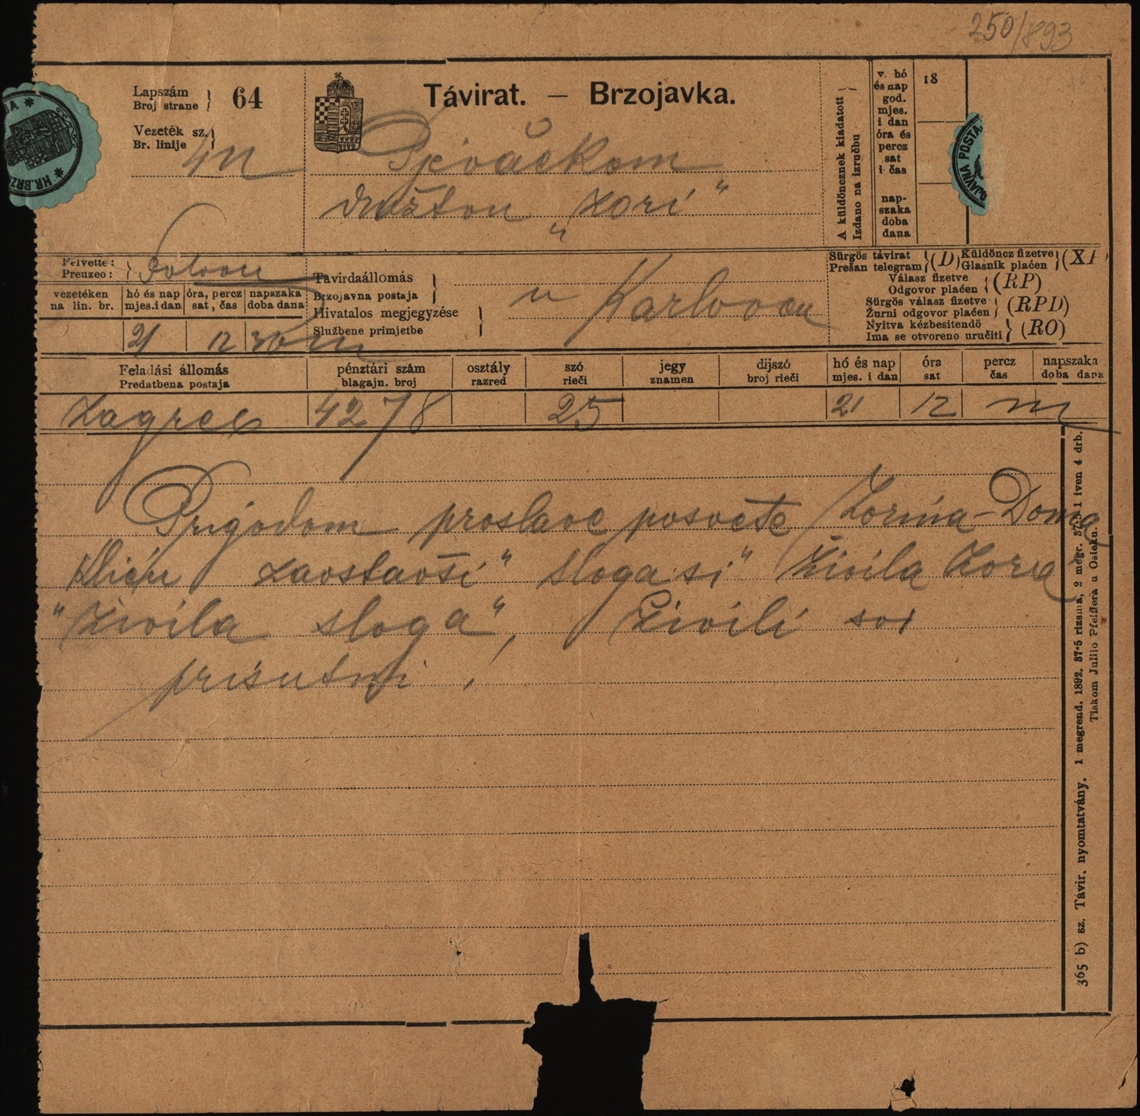 250/893
Lapszám
Broj strane } 64
Vezeték sz.
Br. linije }
Távirat. — Brzojavka.
Pjevačkom
družtvu „Zori“
u Karlovcu
A küldöncznek kiadatott
Izdano na izručbu
v. hó
és nap
god.
mjes.
i dan
óra és
percz
sat
i čas
nap-
szaka
doba
dana
18
Felvette:
Preuzeo: }
vezetéken
na lin. br.
hó és nap
mjes. i dan
óra, percz
sat, čas
napszaka
doba dana
21 12 30 m
Távirdaállomás
Brzojavna postaja }
Hivatalos megjegyzése
Službene primjetbe }
Sürgős távirat
Prešan telegram } (D)
Küldöncz fizetve
Glasnik plaćen } (XP
Válasz fizetve
Odgovor plaćen } (RP)
Sürgős válasz fizetve
Žurni odgovor plaćen } (RPD)
Nyitva kézbesitendő
Ima se otvoreno uručiti } (RO)
Feladási állomás
Predatbena postaja
pénztári szám
blagajn. broj
osztály
razred
szó
rieči
jegy
znamen
dijszó
broj rieči
hó és nap
mjes. i dan
óra
sat
percz
čas
napszaka
doba dana
Zagreb 4278 25 21 12 m
Prigodom proslave posvete Zorina-Doma
kliču zaostavši "Slogaši" Živila Zora
"Živila sloga", Živili svi
prisutni!
365 b) sz. Távir. nyomtatvány. 1 megrend. 1892. 37·5 rizsma, 2 megr. 37·5 1 iven 4 drb.
Tiskom Julijo Pfeiffera u Osieku.